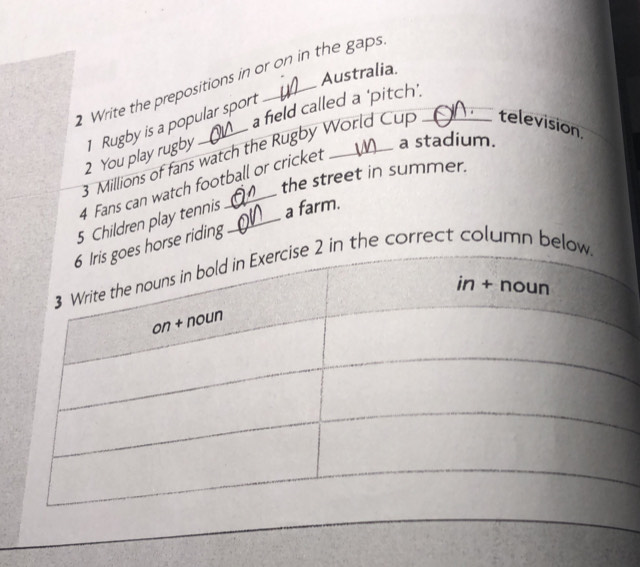 2 Write the prepositions in or on in the gaps.
1 Rugby is a popular sport in Australia.
2 You play rugby on a field called a 'pitch'.
3 Millions of fans watch the Rugby World Cup on. television.
4 Fans can watch football or cricket in a stadium.
5 Children play tennis on the street in summer.
6 Iris goes horse riding on a farm.
3 Write the nouns in bold in Exercise 2 in the correct column below.
on + noun in + noun